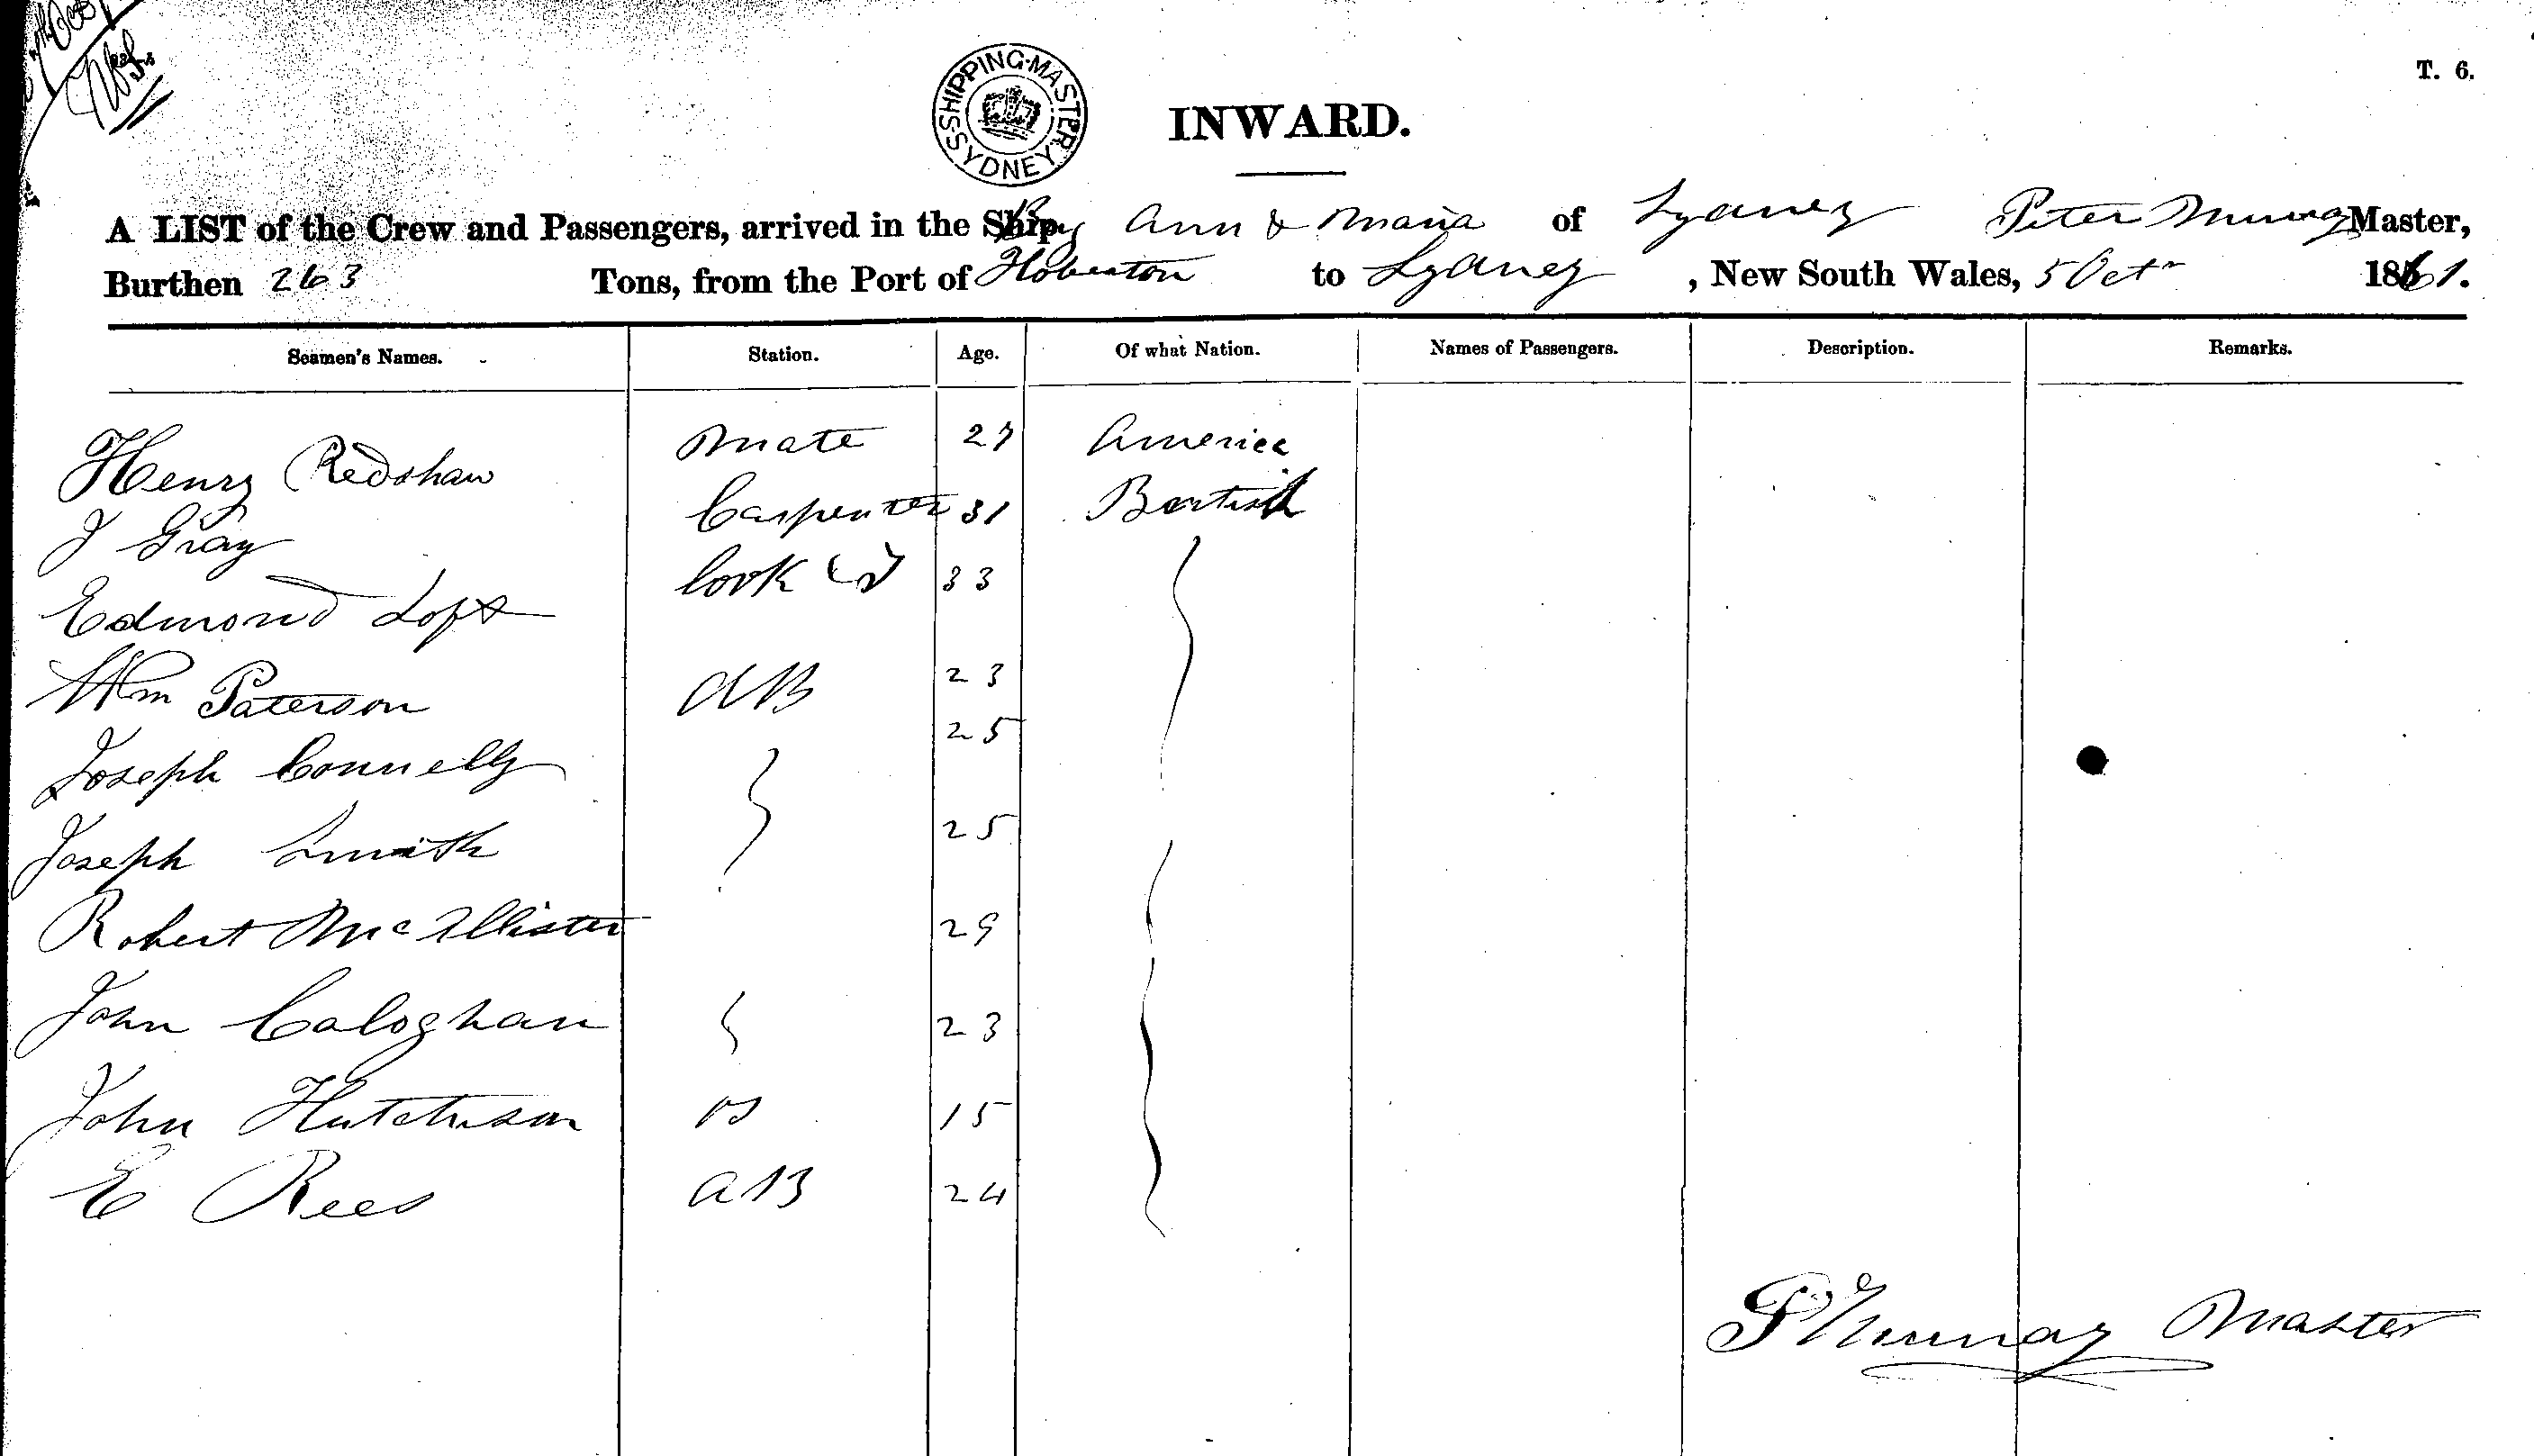 T. 6.
SHIPPING·MASTER SYDNEY
INWARD.
A LIST of the Crew and Passengers, arrived in the Ship Ann & Maria of Sydney Peter Murray Master,
Burthen 263 Tons, from the Port of Hoberton to Sydney, New South Wales, 5 Octr 1861.
Seamen's Names. Station. Age. Of what Nation. Names of Passengers. Description. Remarks.
Henry Redshaw Mate 27 America
J Gray Carpenter 31 British
Edmond Loft Cook 33
Wm Paterson AB 23
Joseph Connelly 25
Joseph Smith 25
Robert McAllister 29
John Caloghan 23
John Hutchison OS 15
E Rees AB 24
P Murray Master